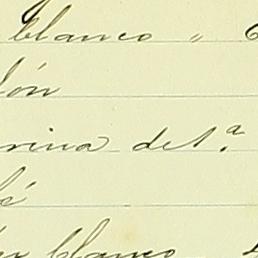 blanco "
lón
rina de 1.ª
fé
blanco